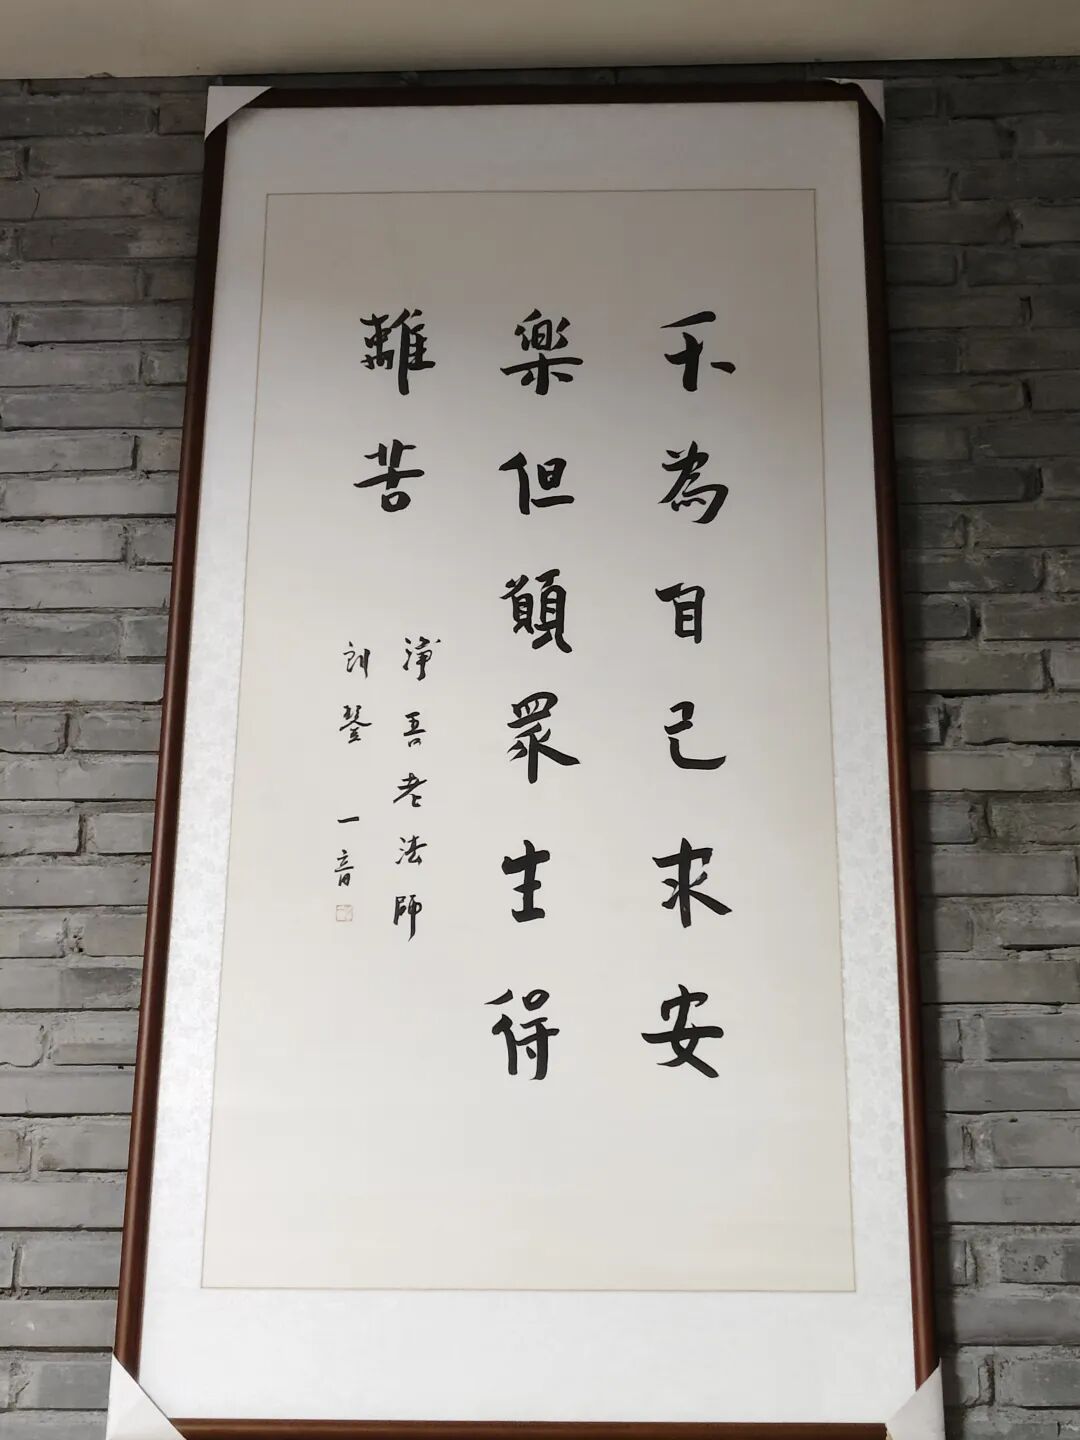 不為自己求安
樂但願眾生得
離苦
淨吾老法師
刻鑒 一音